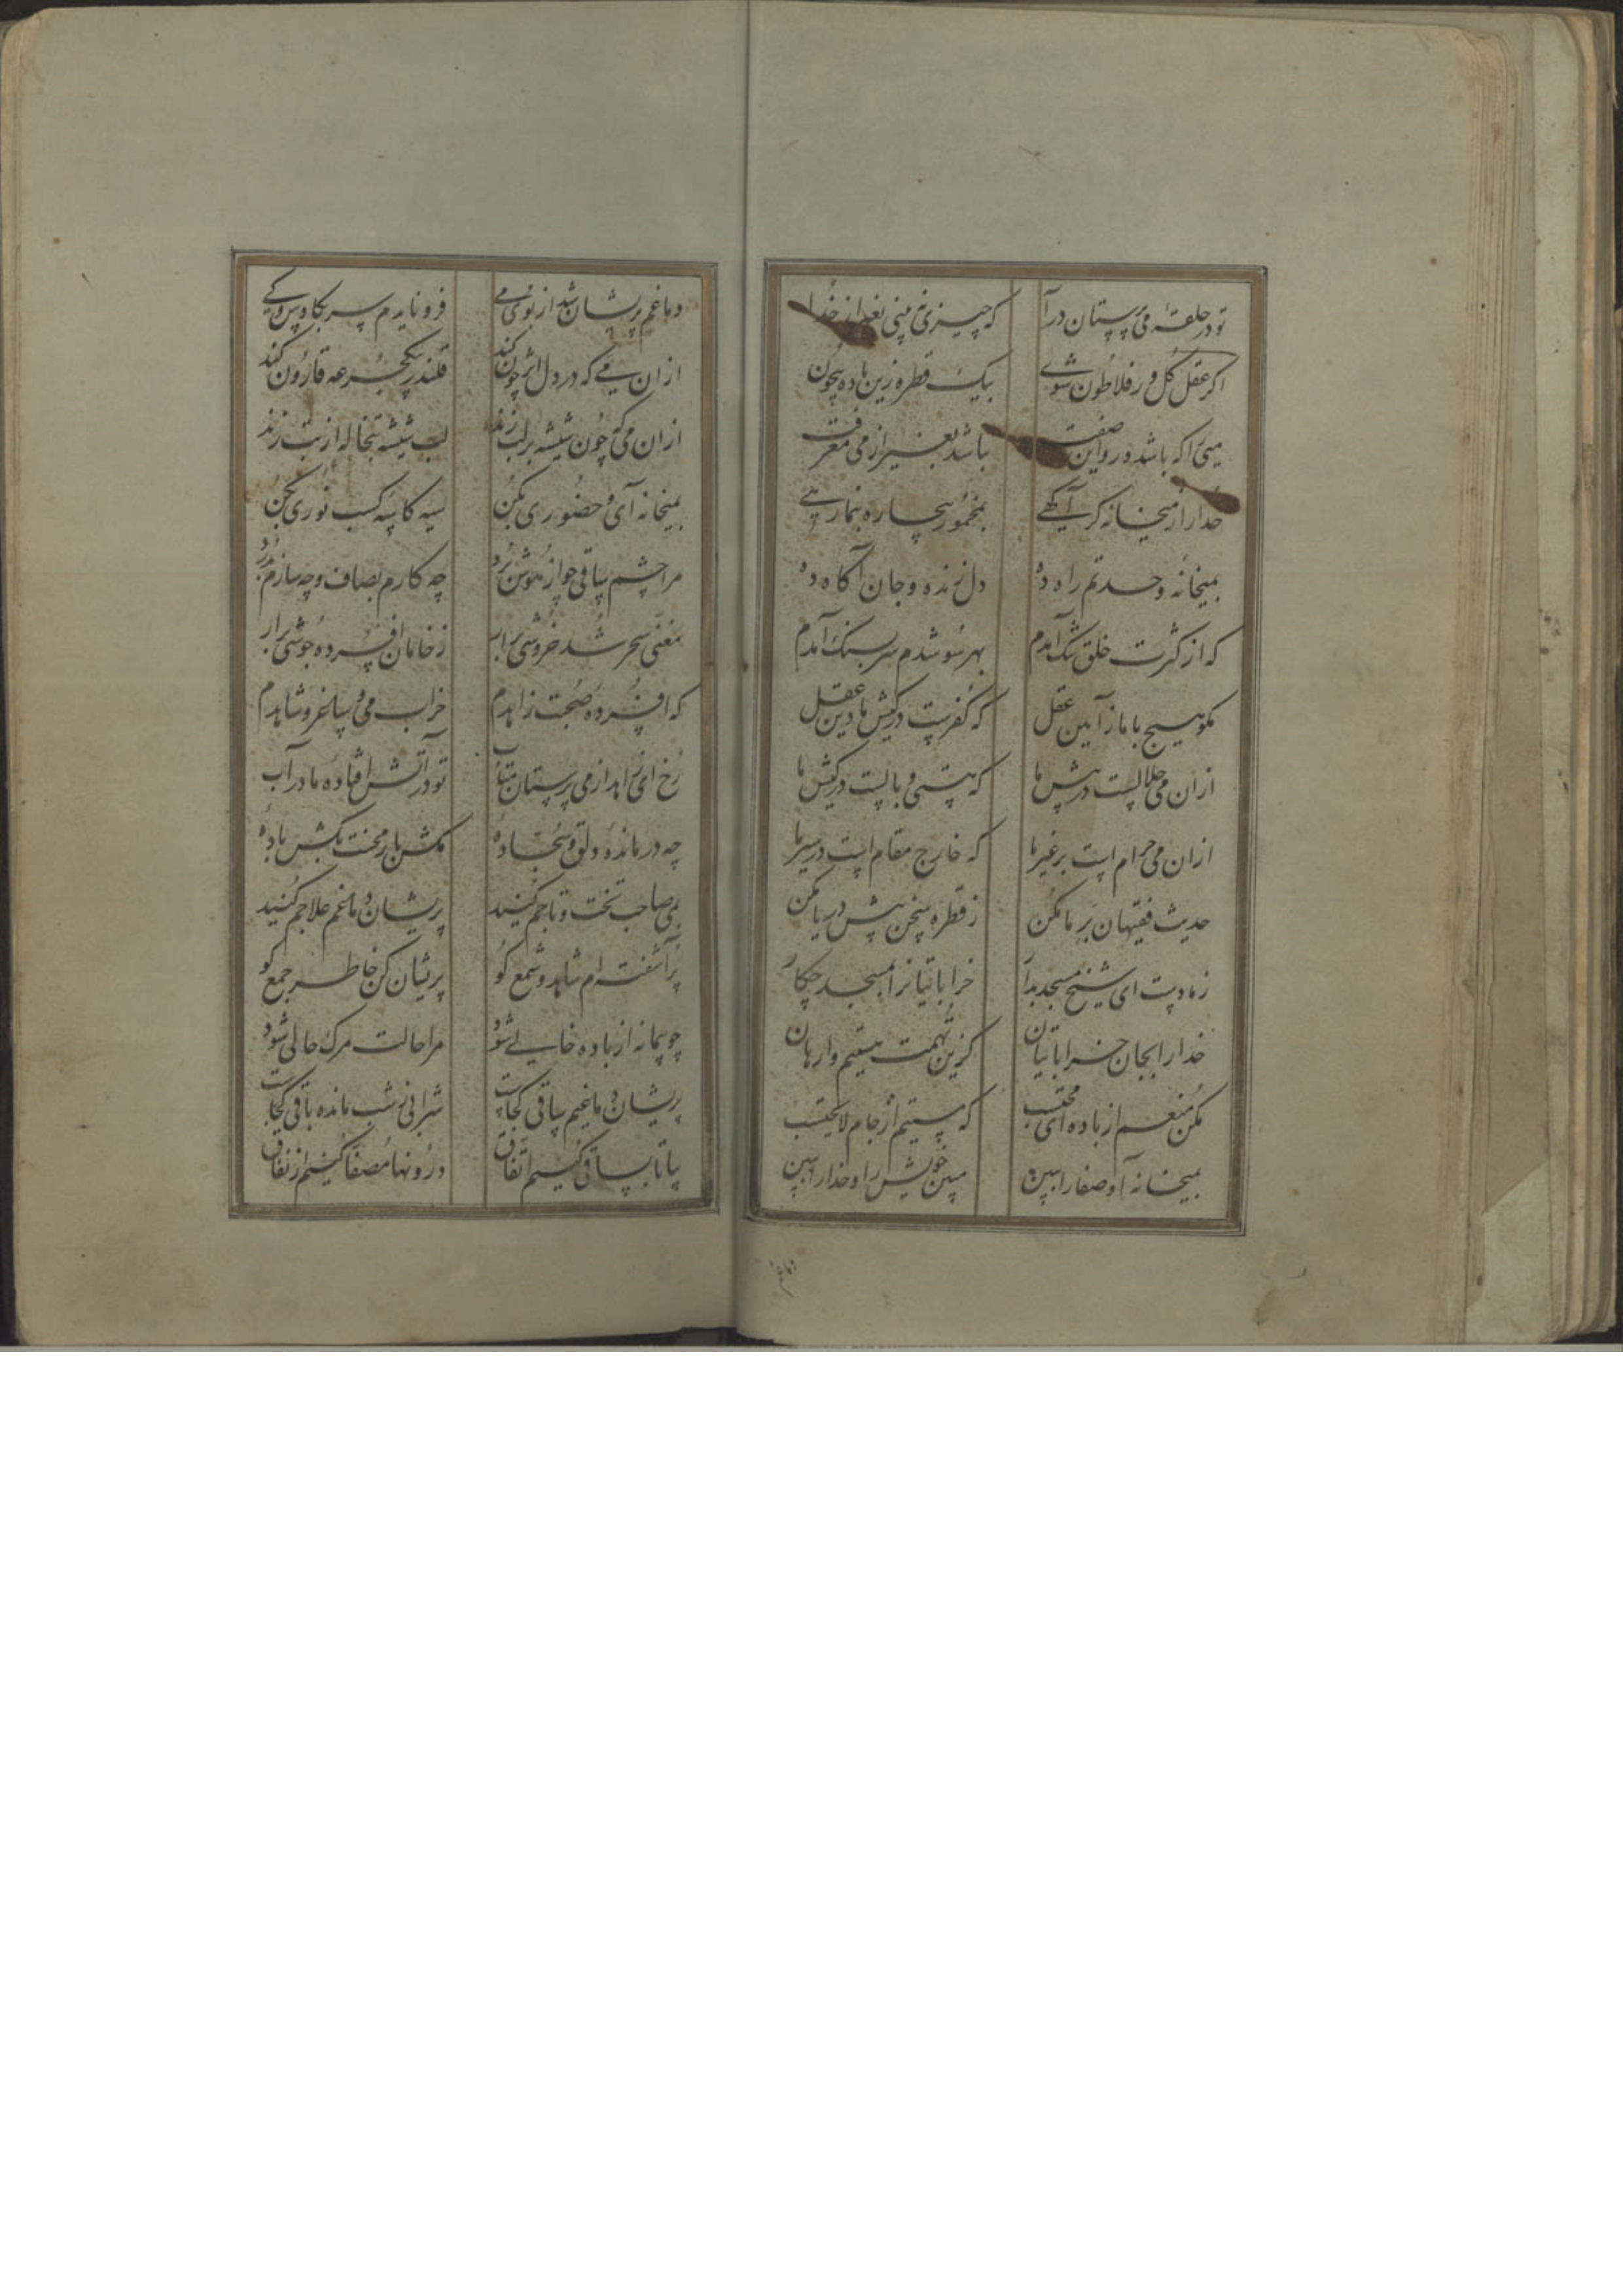 تو در حلقهٔ می پرستان درآ که چیزی نبینی بغیر از خدا
اگر عقل کل ور فلاطون شوی بیک قطره زین باده بیچون
میی را که باشد درو این صفت نباشد بغیر از می معرفت
خدا را ز میخانه گر آگهی بمخمور بیچاره بنما رهی
بمیخانهٔ وحدتم راه ده دل زنده و جان آگاه ده
که از کثرت خلق تنگ آمدم بهر سو شدم سر بسنگ آمدم
مگو هیچ با ما ز آیین عقل که کفرست در کیش ما دین عقل
از آن می حلالست در پیش ما که هستی وبالست در کیش ما
از آن می حرام است بر غیر ما که خارج مقام است در سیر ما
حدیث فقیهان بر ما مکن ز قطره سخن پیش دریا مکن
نماد پست ای شیخ مسجد خراباتیان را بمسجد چکار
خدا را بجان خراباتیان کزین تهمت هستیم وارهان
مکن منعم از باده ای محتسب که مستیم از جام لایحتسب
بمیخانه آ و صفا را ببین مبین خویش را و خدا را ببین
دماغم
دماغم پریشان شد از بوی می فرو نایدم سر بکاوس و کی
از آن می که در دل اثر چون کند قلندر بیک جرعه قارون کند
از آن می که چون شیشه بر لب زند لب شیشه تبخاله از تب زند
بمیخانه آی و حضوری بکن سیه کاسهٔ کسب نوری بکن
مرا چشم ساقی چو از هوش برد چه کارم بصاف و چه سازم بدرد
مغنی سحر شد خروشی برار ز خامان افسرده جوشی برار
که افسرده صحبت زاهدم خراب می و ساغر و شاهدم
رخ ای زاهد از می پرستان متاب تو در آتش افتاده ما در آب
چه درماندهٔ دلق و سجادهٔ مکش بار محنت بکش بادهٔ
بمی صاحب تخت و تاجم کنید پریشان دماغم علاجم کنید
پرآشفته‌ام شاهد و شمع کو پریشان کن خاطر جمع کو
چو پیمانه از باده خالی شود مرا حالت مرگ حالی شود
پریشان دماغیم ساقی کجاست شرابی ز شب مانده باقی کجاست
بیا تا بساقی کنیم اتفاق درونها مصفا کنیم از نفاق